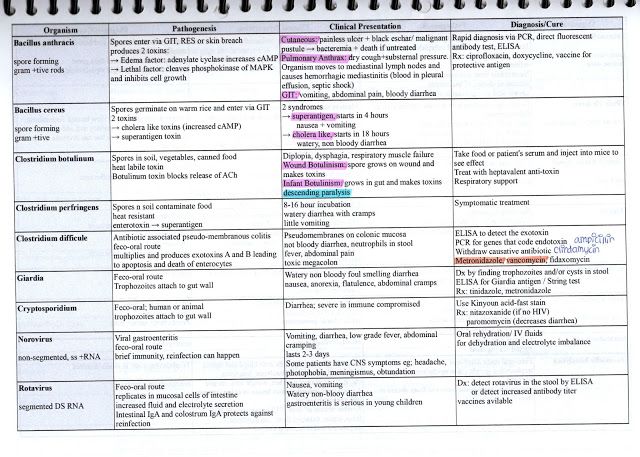 Organism Pathogenesis Clinical Presentation Diagnosis/Cure
Bacillus anthracis
spore forming
gram +tive rods
Spores enter via GIT, RES or skin breach
produces 2 toxins:
→ Edema factor: adenylate cyclase increases cAMP
→ Lethal factor: cleaves phosphokinase of MAPK
and inhibits cell growth
Cutaneous: painless ulcer + black eschar/ malignant
pustule → bacteremia + death if untreated
Pulmonary Anthrax: dry cough+substernal pressure.
Organism moves to mediastinal lymph nodes and
causes hemorrhagic mediastinitis (blood in pleural
effusion, septic shock)
GIT: vomiting, abdominal pain, bloody diarrhea
Rapid diagnosis via PCR, direct fluorescent
antibody test, ELISA
Rx: ciprofloxacin, doxycycline, vaccine for
protective antigen
Bacillus cereus
spore forming
gram +tive
Spores germinate on warm rice and enter via GIT
2 toxins
→ cholera like toxins (increased cAMP)
→ superantigen toxin
2 syndromes
→ superantigen, starts in 4 hours
nausea + vomiting
→ cholera like, starts in 18 hours
watery, non bloody diarrhea
Clostridium botulinum
Spores in soil, vegetables, canned food
heat labile toxin
Botulinum toxin blocks release of ACh
Diplopia, dysphagia, respiratory muscle failure
Wound Botulinism: spore grows on wound and
makes toxins
Infant Botulinism: grows in gut and makes toxins
descending paralysis
Take food or patient's serum and inject into mice to
see effect
Treat with heptavalent anti-toxin
Respiratory support
Clostridium perfringens
Spores n soil contaminated food
heat resistant
enterotoxin → superantigen
8-16 hour incubation
watery diarrhea with cramps
little vomiting
Symptomatic treatment
Clostridium difficile
Antibiotic associated pseudo-membranous colitis
feco-oral route
multiplies and produces exotoxins A and B leading
to apoptosis and death of enterocytes
Pseudomembranes on colonic mucosa
not bloody diarrhea, neutrophils in stool
fever, abdominal pain
toxic megacolon
ELISA to detect the exotoxin
PCR for genes that code endotoxin ampicillin
Withdraw causative antibiotic clindamycin
Metronidazole, vancomycin, fidaxomycin
Giardia
Feco-oral route
Trophozoites attach to gut wall
Watery non bloody foul smelling diarrhea
nausea, anorexia, flatulence, abdominal cramps
Dx by finding trophozoites and/or cysts in stool
ELISA for Giardia antigen / String test
Rx: tinidazole, metronidazole
Cryptosporidium
Feco-oral; human or animal
trophozoites attach to gut wall
Diarrhea; severe in immune compromised
Use Kinyoun acid-fast stain
Rx: nitazoxanide (if no HIV)
paromomycin (decreases diarrhea)
Norovirus
non-segmented, ss +RNA
Viral gastroenteritis
feco-oral route
brief immunity, reinfection can happen
Vomiting, diarrhea, low grade fever, abdominal
cramping
lasts 2-3 days
Some patients have CNS symptoms eg; headache,
photophobia, meningismus, obtundation
Oral rehydration/ IV fluids
for dehydration and electrolyte imbalance
Rotavirus
segmented DS RNA
Feco-oral route
replicates in mucosal cells of intestine
increased fluid and electrolyte secretion
Intestinal IgA and colostrum IgA protects against
reinfection
Nausea, vomiting
Watery non-blooy diarrhea
gastroenteritis is serious in young children
Dx: detect rotavirus in the stool by ELISA
or detect increased antibody titer
vaccines avilable